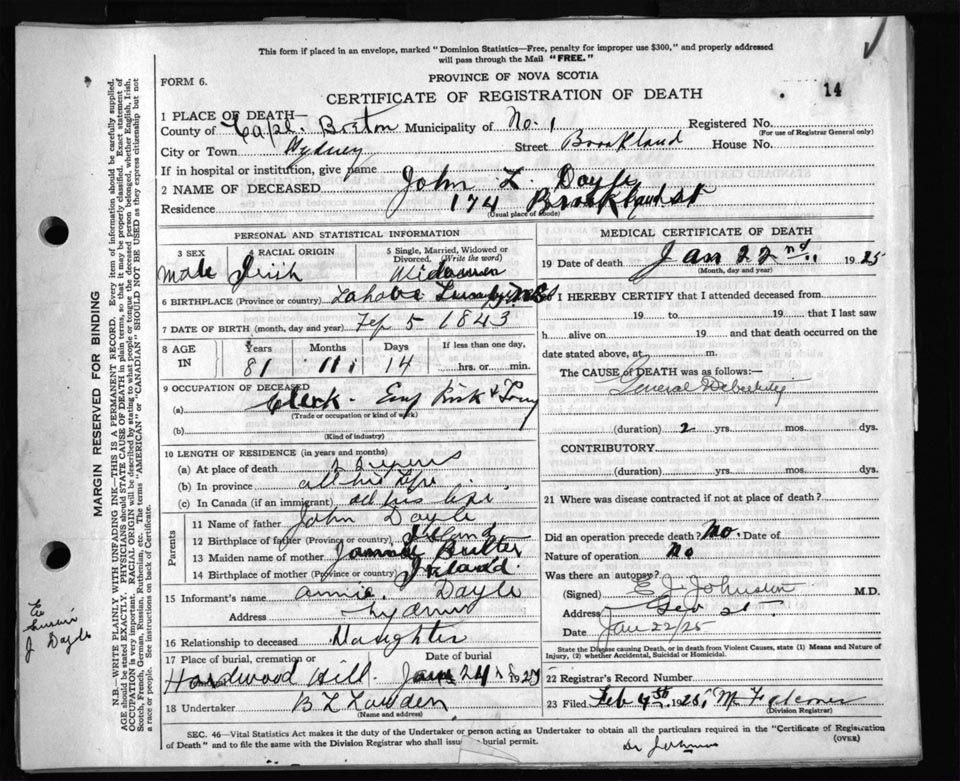 This form if placed in an envelope, marked "Dominion Statistics—Free, penalty for improper use $300," and properly addressed
will pass through the Mail "FREE."
PROVINCE OF NOVA SCOTIA
FORM 6.
CERTIFICATE OF REGISTRATION OF DEATH
14
1 PLACE OF DEATH—
County of Cape Breton Municipality of No. 1 Registered No.
(For use of Registrar General only)
City or Town Sydney Street Brookland House No.
If in hospital or institution, give name
2 NAME OF DECEASED John L. Doyle
Residence 174 Brookland st
(Usual place of abode)
PERSONAL AND STATISTICAL INFORMATION
3 SEX male
4 RACIAL ORIGIN Irish
5 Single, Married, Widowed or Divorced. (Write the word)
6 BIRTHPLACE (Province or country)
7 DATE OF BIRTH (month, day and year) Feb 5 1843
8 AGE IN Years 81 Months 11 Days 14 If less than one day, hrs. or min.
9 OCCUPATION OF DECEASED
(a) Clerk
(Trade or occupation or kind of work)
(b)
(Kind of industry)
10 LENGTH OF RESIDENCE (in years and months)
(a) At place of death
(b) In province all his life
(c) In Canada (if an immigrant) all his life
Parents
11 Name of father John Doyle
12 Birthplace of father (Province or country) Ireland
13 Maiden name of mother
14 Birthplace of mother (Province or country) Ireland
15 Informant's name Annie Doyle
Address Sydney
16 Relationship to deceased Daughter
17 Place of burial, cremation or Date of burial
Hardwood Hill. Jan 24
18 Undertaker
(Name and address)
MEDICAL CERTIFICATE OF DEATH
19 Date of death Jan 22nd 1925
(Month, day and year)
I HEREBY CERTIFY that I attended deceased from
19 to 19 that I last saw
h alive on 19 and that death occurred on the
date stated above, at m.
The CAUSE of DEATH was as follows:—
General Debility
(duration) 2 yrs. mos. dys.
CONTRIBUTORY.
(duration) yrs. mos. dys.
21 Where was disease contracted if not at place of death?
Did an operation precede death? No. Date of
Nature of operation No
Was there an autopsy?
(Signed) E. J. Johnston M.D.
Address Geo st.
Date Jan 22/25
State the Disease causing Death, or in death from Violent Causes, state (1) Means and Nature of
Injury, (2) whether Accidental, Suicidal or Homicidal.
22 Registrar's Record Number
23 Filed Feb 4th 1925
(Division Registrar)
SEC. 46—Vital Statistics Act makes it the duty of the Undertaker or person acting as Undertaker to obtain all the particulars required in the "Certificate of Registration
of Death" and to file the same with the Division Registrar who shall issue burial permit.
(OVER)
MARGIN RESERVED FOR BINDING
N.B.—WRITE PLAINLY WITH UNFADING INK—THIS IS A PERMANENT RECORD. Every item of information should be carefully supplied.
AGE should be stated EXACTLY. PHYSICIANS should STATE CAUSE OF DEATH in plain terms, so that it may be properly classified. Exact statement of
OCCUPATION is very important. RACIAL ORIGIN will be described by stating to what people or tongue the deceased person belonged, whether English, Irish,
Scotch, French, German, Russian, Ruthenian, etc. The terms "AMERICAN" or "CANADIAN" SHOULD NOT BE USED as they express citizenship but not
a race or people. See instructions on back of Certificate.
J Doyle